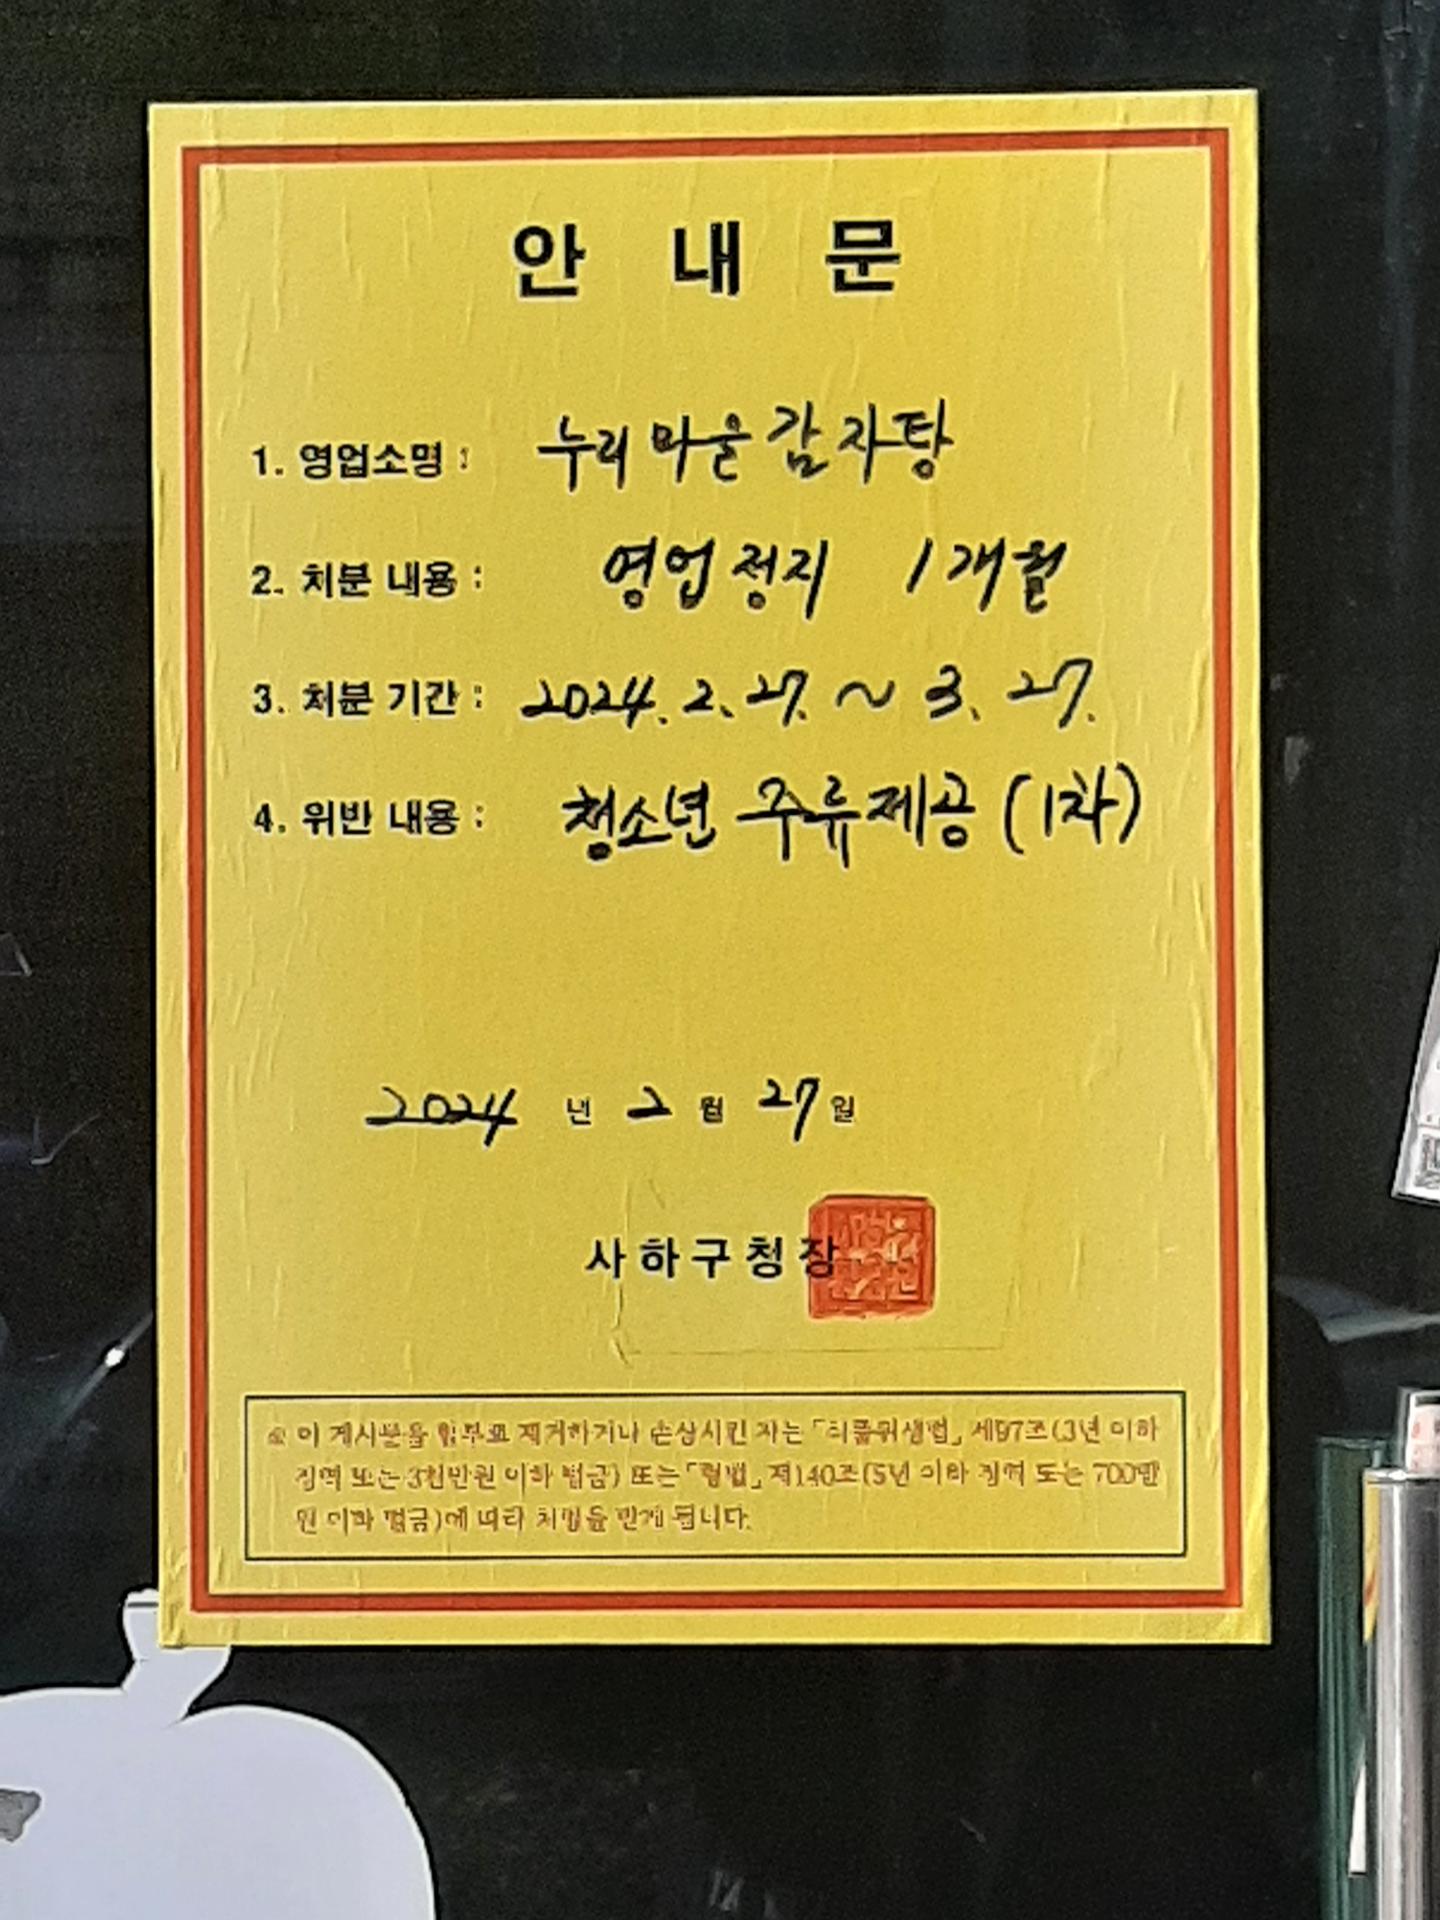 안 내 문
1. 영업소명 : 누리마을감자탕
2. 처분 내용 : 영업정지 1개월
3. 처분 기간 : 2024. 2. 27. ~ 3. 27.
4. 위반 내용 : 청소년 주류제공 (1차)
2024 년 2 월 27 일
사하구청장
※ 이 게시문을 함부로 제거하거나 손상시킨 자는 「식품위생법」 제97조(3년 이하
징역 또는 3천만원 이하 벌금) 또는 「형법」 제140조(5년 이하 징역 또는 700만
원 이하 벌금)에 따라 처벌을 받게 됩니다.